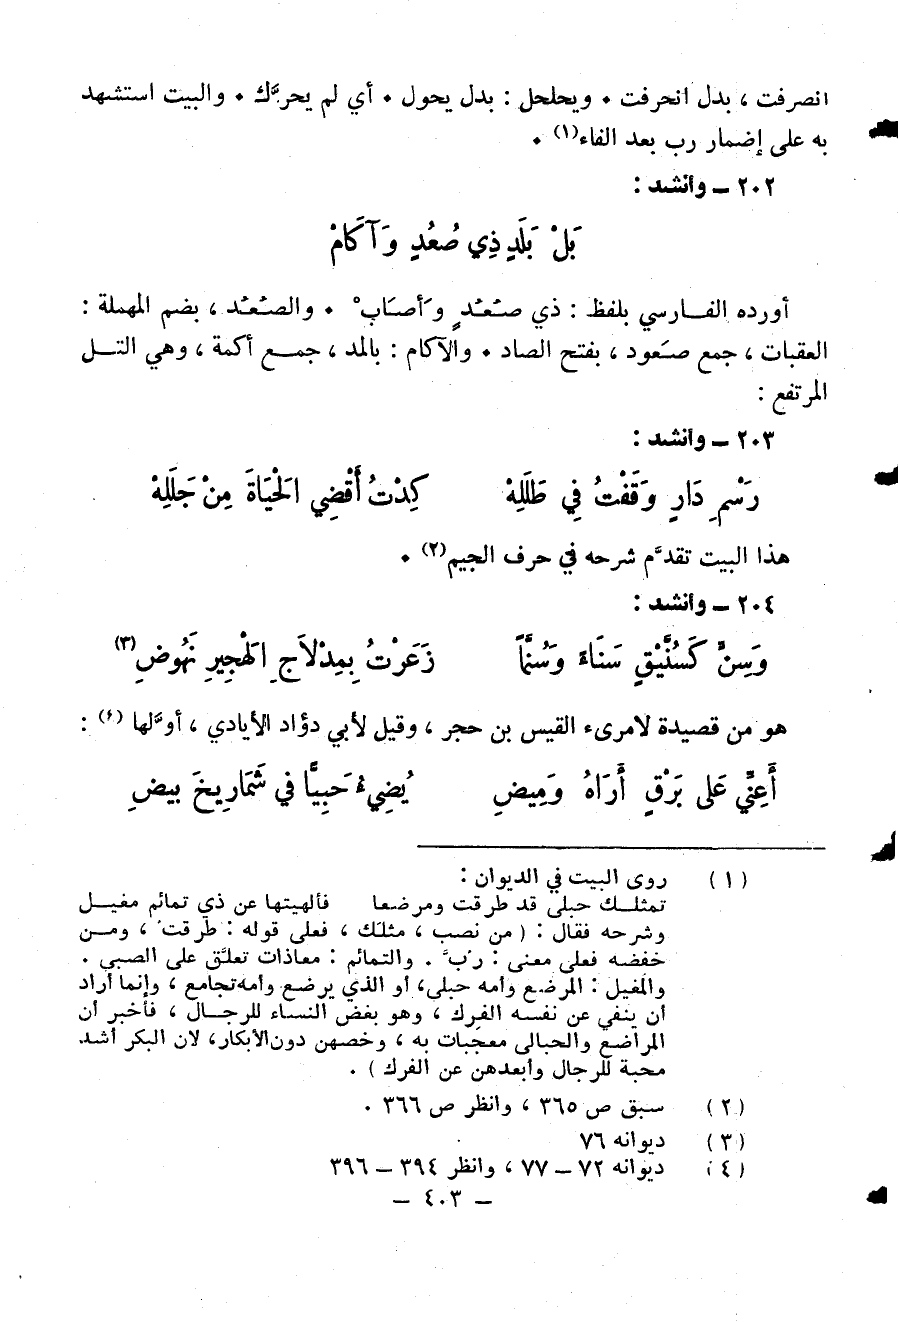 انصرفت ، بدل انحرفت ٠ ويحلحل : بدل يحول ٠ أي لم يحرَّك ٠ والبيت استشهد
به على إضمار رب بعد الفاء(١) ٠
٢٠٢ – وأنشد :
بَلْ بَلَدٍ ذِي صُعُدٍ وَآكَامْ
أورده الفـــارسي بلفظ : ذي صُعُدٍ وَأصَابْ ٠ والصُعُد ، بضم المهملة :
العقبات ، جمع صَعود ، بفتح الصاد ٠ والآكام : بالمد ، جمــع أكمة ، وهي التــل
المرتفع :
٢٠٣ – وأنشد :
رَسْمِ دَارٍ وَقَفْتُ فِي طَلَلِهْ كِدْتُ أَقْضِي الْحَيَاةَ مِنْ جَلَلِهْ
هذا البيت تقدَّم شرحه في حرف الجيم(٢) ٠
٢٠٤ – وأنشد :
وَسِنٍّ كَسُنَّيْقٍ سَنَاءً وَسُنَّمًا ذَعَرْتُ بِمِدْلَاجِ الْهَجِيرِ نَهُوضِ(٣)
هو من قصيدة لامرىء القيس بن حجر ، وقيل لأبي دؤاد الأيادي ، أوَّلها (٤) :
أَعِنِّي عَلَى بَرْقٍ أَرَاهُ وَمِيضِ يُضِيءُ حَبِيًّا فِي شَمَارِيخَ بِيضِ
(١) روى البيت في الديوان :
تمثلــك حبلى قد طرقت ومرضعا فألهيتها عن ذي تمائم مغيــل
وشرحه فقال : ( من نصب ، مثلك ، فعلى قوله : طرقتُ ، ومــن
خفضه فعلى معنى : رُبَّ . والتمائم : معاذات تعلَّق على الصبي .
والمغيل : المرضع وأمه حبلى، أو الذي يرضع وأمه تجامع ، وإنما أراد
أن ينفي عن نفسه الفِرك ، وهو بغض النساء للرجــال ، فأخبر أن
المراضع والحبالى معجبات به ، وخصهن دون الأبكار، لان البكر أشد
محبة للرجال وأبعدهن عن الفرك ) .
(٢) سبق ص ٣٦٥ ، وانظر ص ٣٦٦ .
(٣) ديوانه ٧٦
(٤) ديوانه ٧٢ – ٧٧ ، وانظر ٣٩٤ – ٣٩٦
– ٤٠٣ –